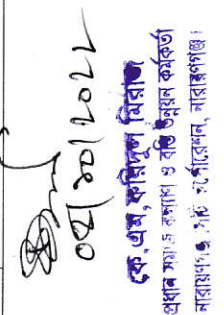 ০২/১০/২০২২
কে, এম, ফরিদুল মিরাজ
প্রধান সমাজ কল্যাণ ও বস্তি উন্নয়ন কর্মকর্তা
নারায়ণগঞ্জ সিটি কর্পোরেশন, নারায়ণগঞ্জ।